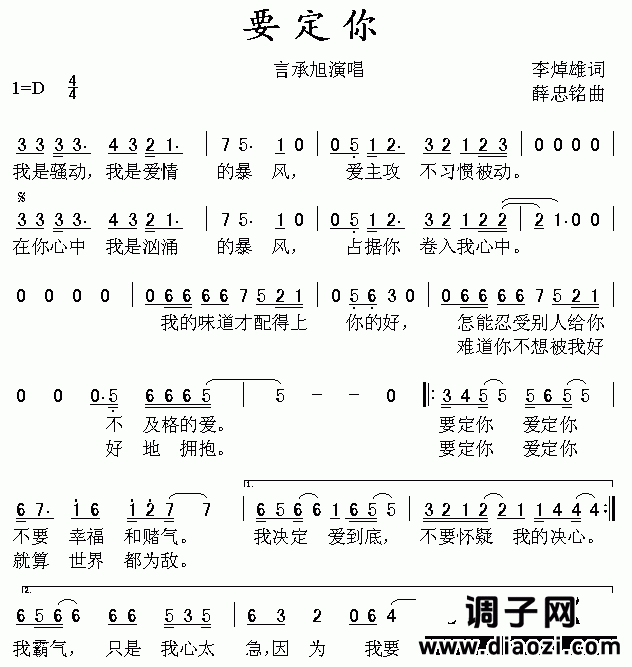 要定你
言承旭演唱
李焯雄词
1=D 4/4
薛忠铭曲
3 3 3 3· 4 3 2 1· | 7 5· 1 0 | 0 5 1 2· 4 3 2 1 2 3 | 0 0 0 0 |
我是骚动，我是爱情 的暴 风， 爱主攻 不习惯被动。
3 3 3 3· 4 3 2 1· | 7 5· 1 0 | 0 5 1 2· 3 2 1 2 2 | 2 1· 0 0 |
在你心中 我是汹涌 的暴 风， 占据你 卷入我心中。
0 0 0 0 | 0 6 6 6 6 7 5 2 1 | 0 5 6 3 0 | 0 6 6 6 6 7 5 2 1 |
我的味道才配得上 你的好， 怎能忍受别人给你
难道你不想被我好
0 0 0· 5 6 6 6 5 | 5 - - 0 |: 3 4 5 5 5 6 5 5 |
不 及格的爱。 要定你 爱定你
好 地 拥抱。 要定你 爱定你
6 7· 1 6 1 2 7 7 | 1. 6 5 6 6 1 6 5 5 | 3 2 1 2 2 1 4 4 4 :|
不要 幸福 和赌气。 我决定 爱到底， 不要怀疑 我的决心。
就算 世界 都为敌。
2. 6 5 6 6 6 6 5 3 5 | 6 3 2 0 6 4
我霸气， 只是 我心太 急，因 为 我要
调子网
www.diaozi.com